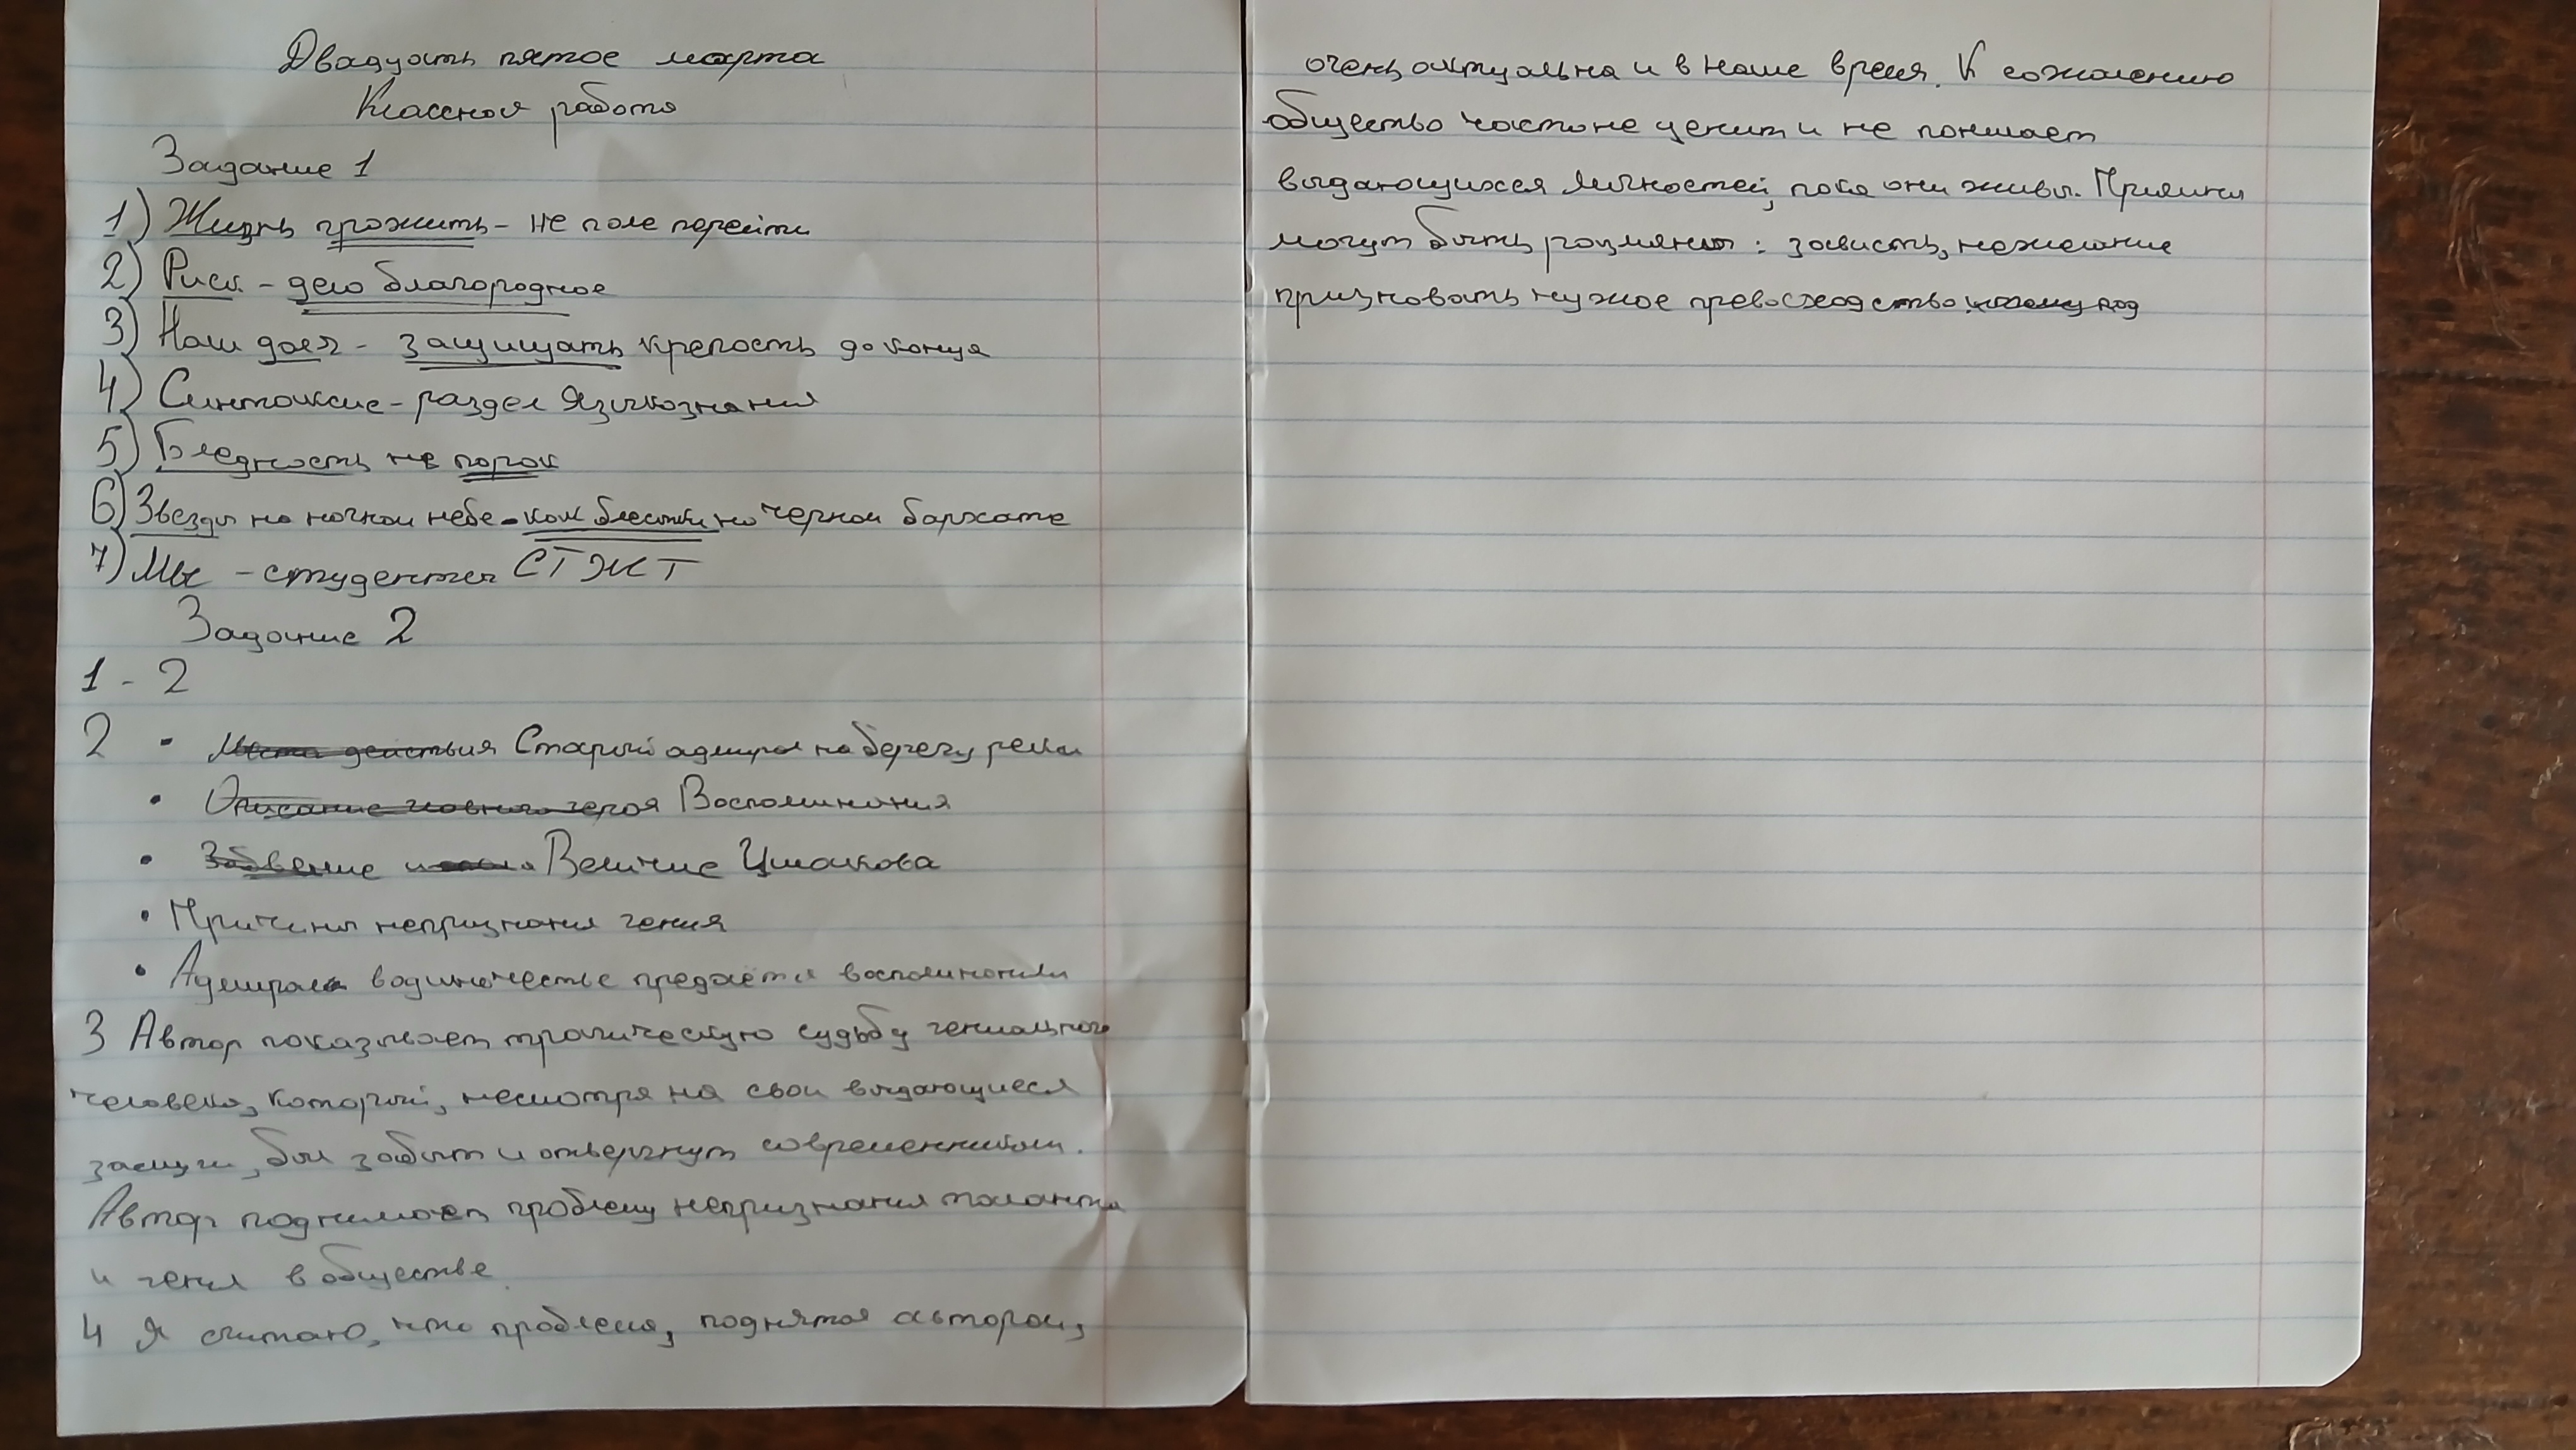 Двадцать пятое марта
Классная работа
Задание 1
1) Жизнь прожить - не поле перейти
2) Риск - дело благородное
3) Наш долг - защищать крепость до конца
4) Синтаксис - раздел языкознания
5) Бледность не порок
6) Звезды на ночном небе - как блестки на черном бархате
7) Мы - студенты СТЖТ
Задание 2
1 - 2
2 • Места действия Старый адмирал на берегу реки
• Описание главного героя Воспоминания
• Забвение Величие Ушакова
• Причины непризнания гения
• Адмирал в одиночестве предаётся воспоминаниям
3 Автор показывает трагическую судьбу гениального
человека, который, несмотря на свои выдающиеся
заслуги, был забыт и отвергнут современниками.
Автор поднимает проблему непризнания таланта
и гения в обществе.
4 Я считаю, что проблема, поднятая автором,
очень актуальна и в наше время. К сожалению
общество часто не ценит и не понимает
выдающихся личностей, пока они живы. Причины
могут быть разными: зависть, нежелание
признавать чужое превосходство